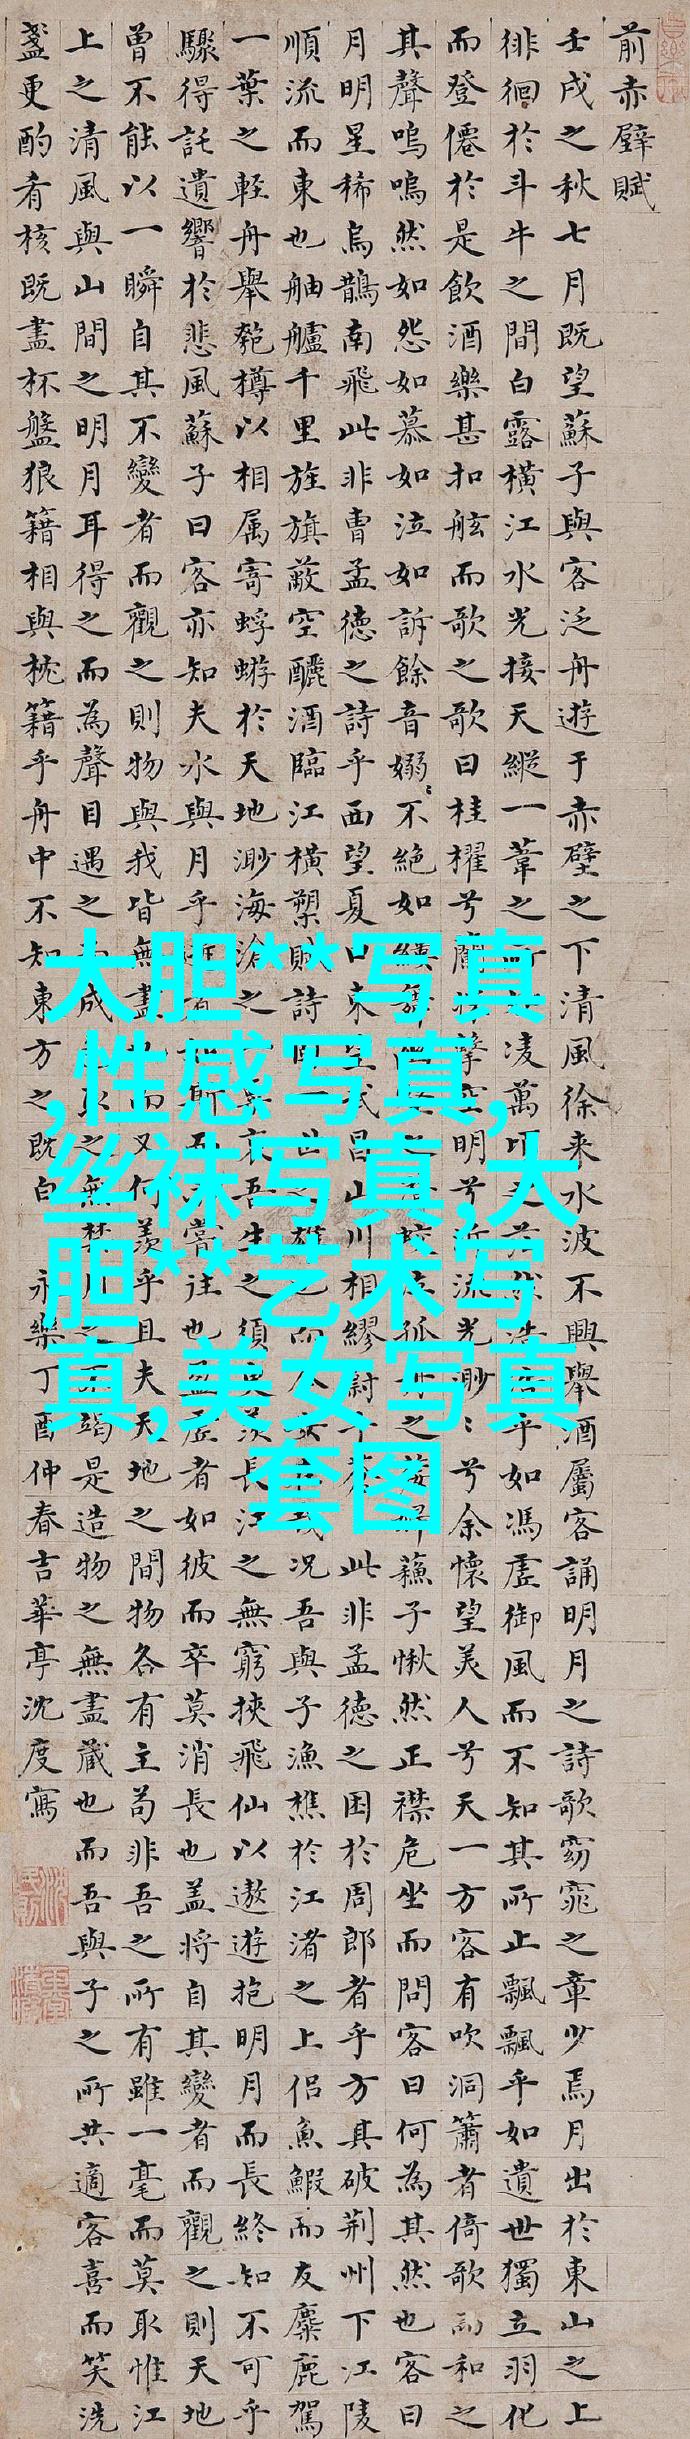 前赤壁賦
壬戌之秋七月既望蘇子與客泛舟遊于赤壁之下清風徐来水波不興舉酒屬客誦明月之詩歌窈窕之章少焉月出於東山之上
徘徊於斗牛之間白露橫江水光接天縱一葦之所凌萬乎如馮虛御風而不知其所止飄飄乎如遺世獨立羽化
而登僊於是飲酒樂甚扣舷而歌之歌曰桂櫂兮蘭擊空明兮流光渺〻兮余懷望美人兮天一方客有吹洞簫者倚歌而和之
其聲嗚嗚然如怨如慕如泣如訴餘音嫋〻不絕如縷舞孤之蘓子愀然正襟危坐而問客曰何為其然也客曰
月明星稀烏鵲南飛此非曹孟德之詩乎西望夏口東武昌山川相繆鬱此非孟德之困於周郎者乎方其破荆州下江陵
順流而東也舳艫千里旌旗蔽空釃酒臨江橫槊賦詩世雄而况吾與子漁樵於江渚之上侶魚鰕而友麋鹿駕
一葉之輕舟舉匏樽以相属寄蜉蝣於天地渺海滄之哀吾生之須羨長江之無窮挾飛仙以遨遊抱明月而長終知不可乎
驟得託遺響於悲風蘇子曰客亦知夫水與月乎斯而嘗往也虛者如彼而卒莫消長也盖將自其變者而觀之則天地
曾不能以一瞬自其不變者而觀之則物與我皆無盡而又何羨乎且夫天地之間物各有主苟非吾之所有雖一毫而莫取惟江
上之清風與山間之明月耳得之而為聲目遇之成之無禁竭是造物之無盡藏也而吾與子之所共適客喜而笑洗
盞更酌肴核既盡杯盤狼籍相與枕籍乎舟中不知東方之既白 永樂丁酉仲春吉華亭沈度寫
大胆**写真
,性感写真,
丝袜写真,大
胆**艺术写
真,美女写真
套图